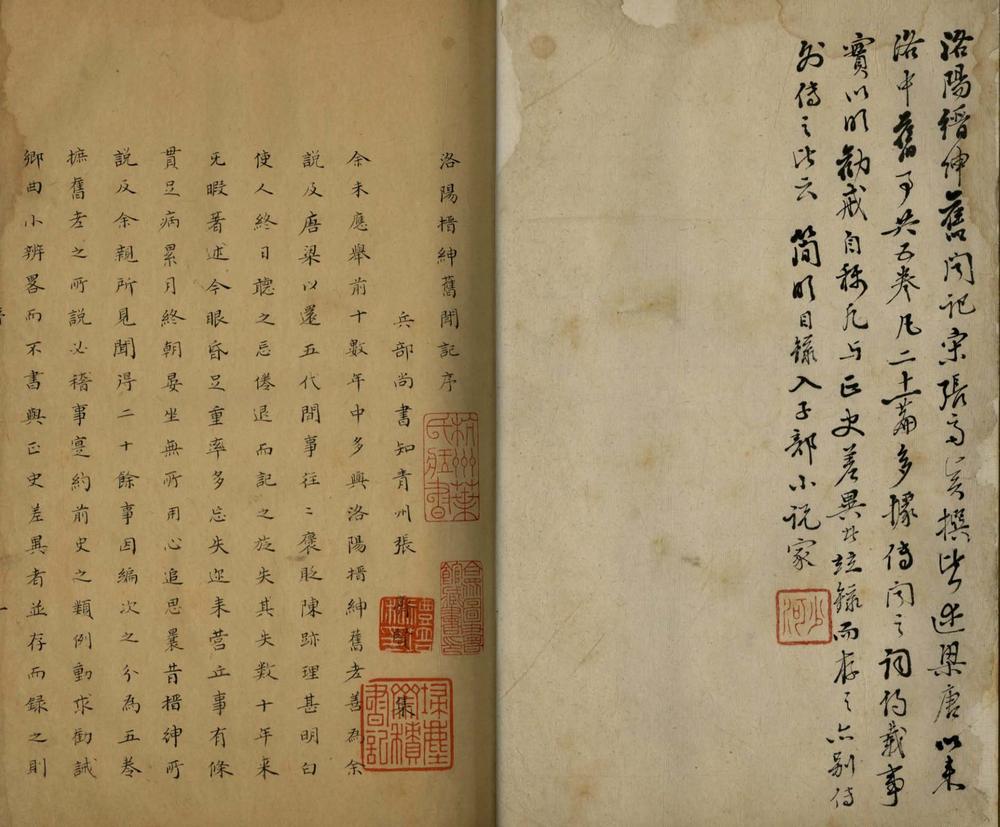 洛陽縉紳舊聞記宋張齊賢撰皆述梁唐以來
洛中舊事共五卷凡二十一篇多據傳聞之詞約載事
實以明勸戒自稱凡与正史差異者竝錄而存之亦別傳
外傳之比云 簡明目錄入子部小說家
沙河
洛陽搢紳舊聞記序
兵部尚書知青州張齊賢集
余未應舉前十數年中多與洛陽搢紳舊老善為余
說及唐梁以還五代間事往〻褒貶陳跡理甚明白
使人終日聽之忘倦退而記之旋失其失數十年來
旡暇著述今眼昏足重率多忘失迩来营丘事有條
貫足病累月終朝晏坐無所用心追思曩昔搢紳所
說及余親所見聞淂二十餘事因編次之分為五卷
摭舊老之所說必稽事寔約前史之類例動求勸誡
鄉曲小辨畧而不書與正史差異者並存而錄之則
杭州葉氏藏書
合眾圖書館藏書印
掃塵齋積書記
禮培私印